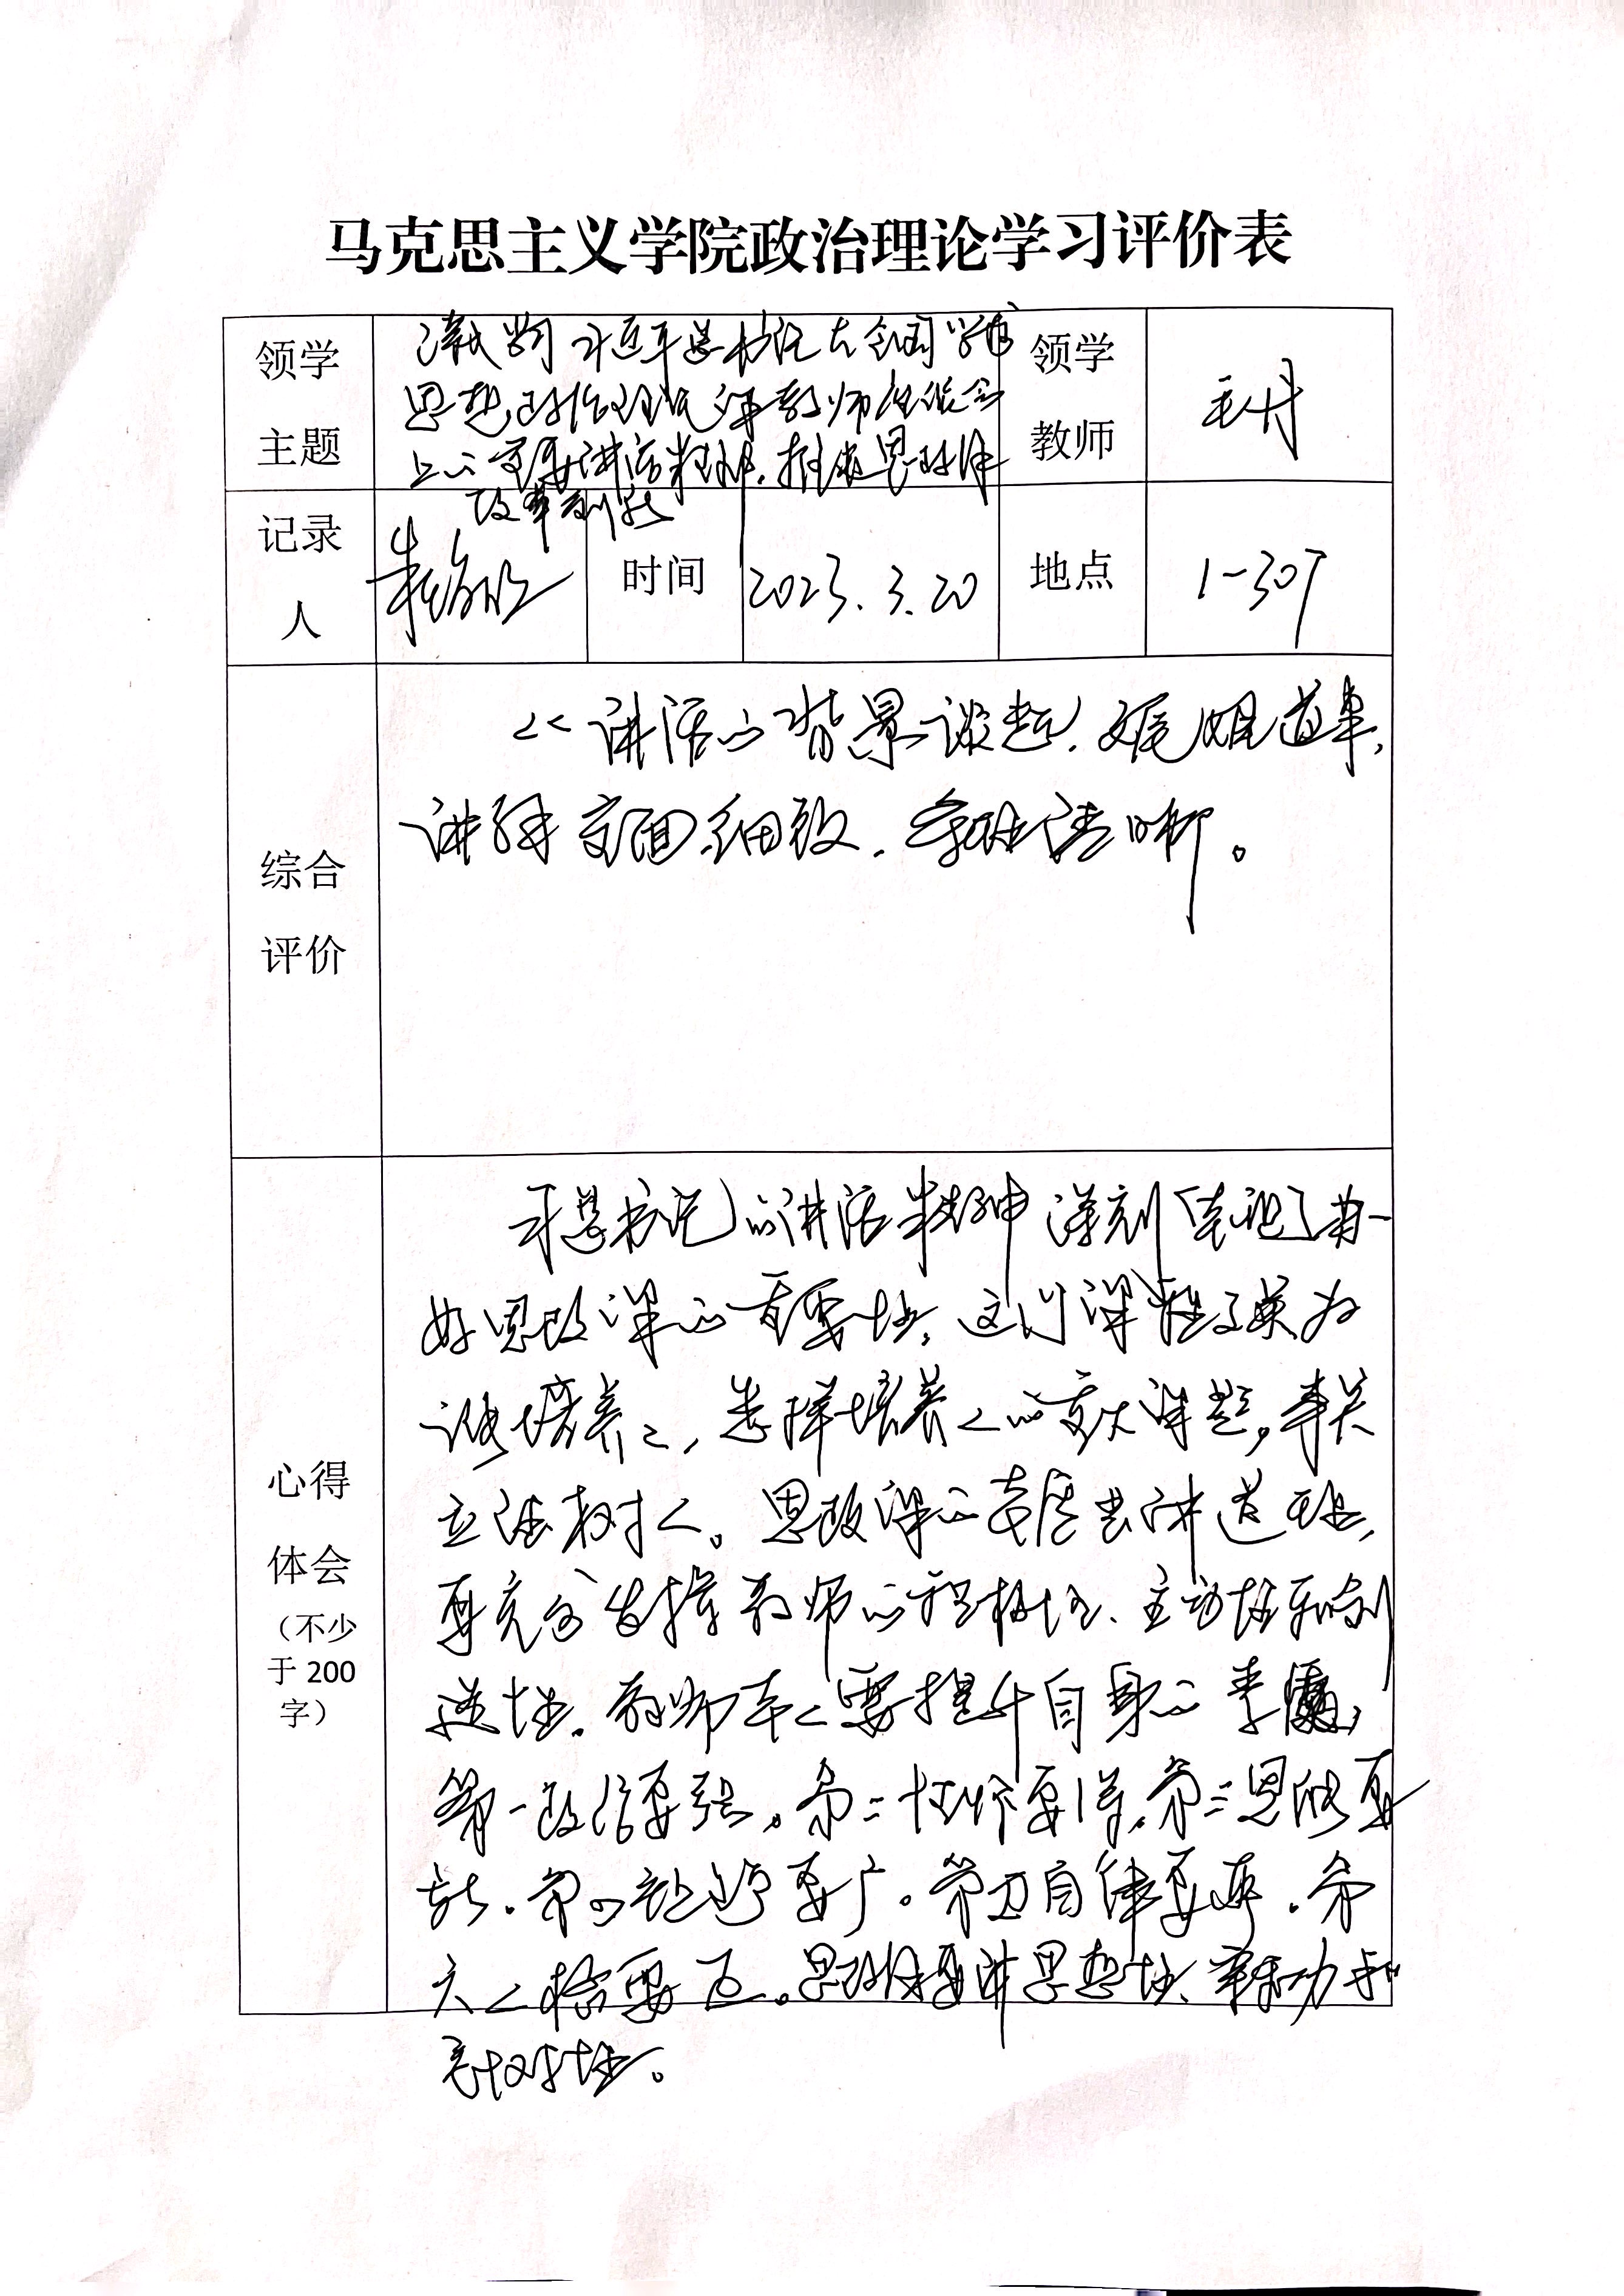 马克思主义学院政治理论学习评价表
领学主题
习近平总书记在全国学校
思想政治理论课教师座谈会
上的重要讲话精神，推进思政课
改革创新
领学教师
王丹
记录人
时间
2023.3.20
地点
1-307
综合评价
从讲话的背景谈起，娓娓道来，
讲解全面细致，条理清晰。
心得体会
（不少于200字）
习总书记的讲话精神深刻阐述了办
好思政课的重要性，这门课程事关为
谁培养人，怎样培养人的重大课题，事关
立德树人。思政课的本质是讲道理，
要充分发挥教师的积极性、主动性和创
造性。教师本人要提升自身的素质，
第一政治要强。第二情怀要深，第三思维要
新，第四视野要广。第五自律要严，第
六人格要正。思政课要讲思想性、
针对性。